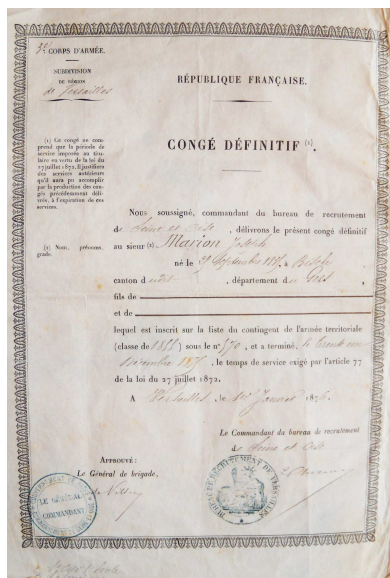 3e CORPS D'ARMÉE.
SUBDIVISION
DE RÉGION
de Versailles
RÉPUBLIQUE FRANÇAISE.
CONGÉ DÉFINITIF (1).
(1) Ce congé ne com-
prend que la période de
service imposée au titu-
laire en vertu de la loi du
27 juillet 1872. Il justifiera
des services antérieurs
qu'il aura pu accomplir
par la production des con-
gés précédemment déli-
vrés, à l'expiration de ces
services.
(2) Nom, prénoms,
grade.
Nous soussigné, commandant du bureau de recrutement
de Seine et Oise, délivrons le présent congé définitif
au sieur (2) Marion Joseph
né le Septembre
canton d , département du Gers
fils de
et de
lequel est inscrit sur la liste du contingent de l'armée territoriale
(classe de 1855) sous le n° 570, et a terminé, le trente un
Décembre 1875, le temps de service exigé par l'article 77
de la loi du 27 juillet 1872.
A Versailles le 1er Janvier 1876
Le Commandant du bureau de recrutement
de Seine et Oise
APPROUVÉ :
Le Général de brigade,
LE GÉNÉRAL
COMMANDANT
BUREAU DE RECRUTEMENT DE VERSAILLES